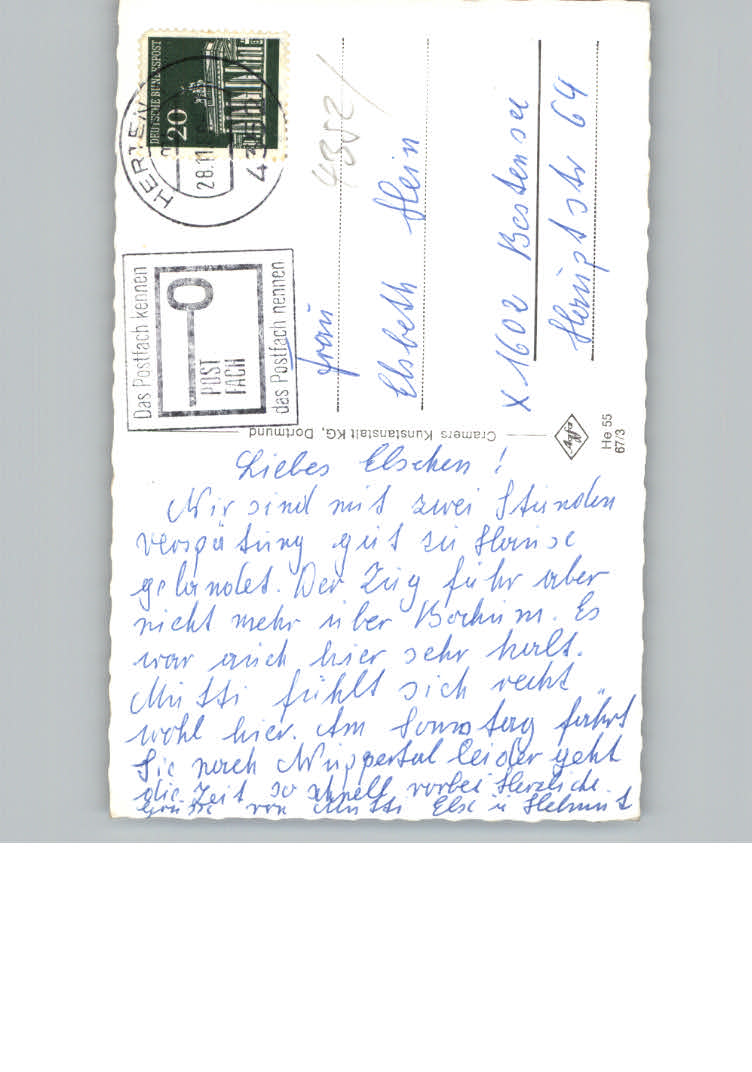 DEUTSCHE BUNDESPOST
20
HERTEN
28.11
Das Postfach kennen
POST
FACH
das Postfach nennen
4352/
Frau
Elsbeth Hein
X 1602 Bestensee
Hauptstr 64
Cramers Kunstanstalt KG, Dortmund
Agfa
He 55
67/3
Liebes Elschen!
Wir sind mit zwei Stunden
Verspätung gut zu Hause
gelandet. Der Zug fuhr aber
nicht mehr über Bochum. Es
war auch hier sehr kalt.
Mutti fühlt sich recht
wohl hier. Am Sonntag fährt
Sie nach Wuppertal leider geht
die Zeit so schnell vorbei Herzliche
Grüsse von Mutti Else u Helmut